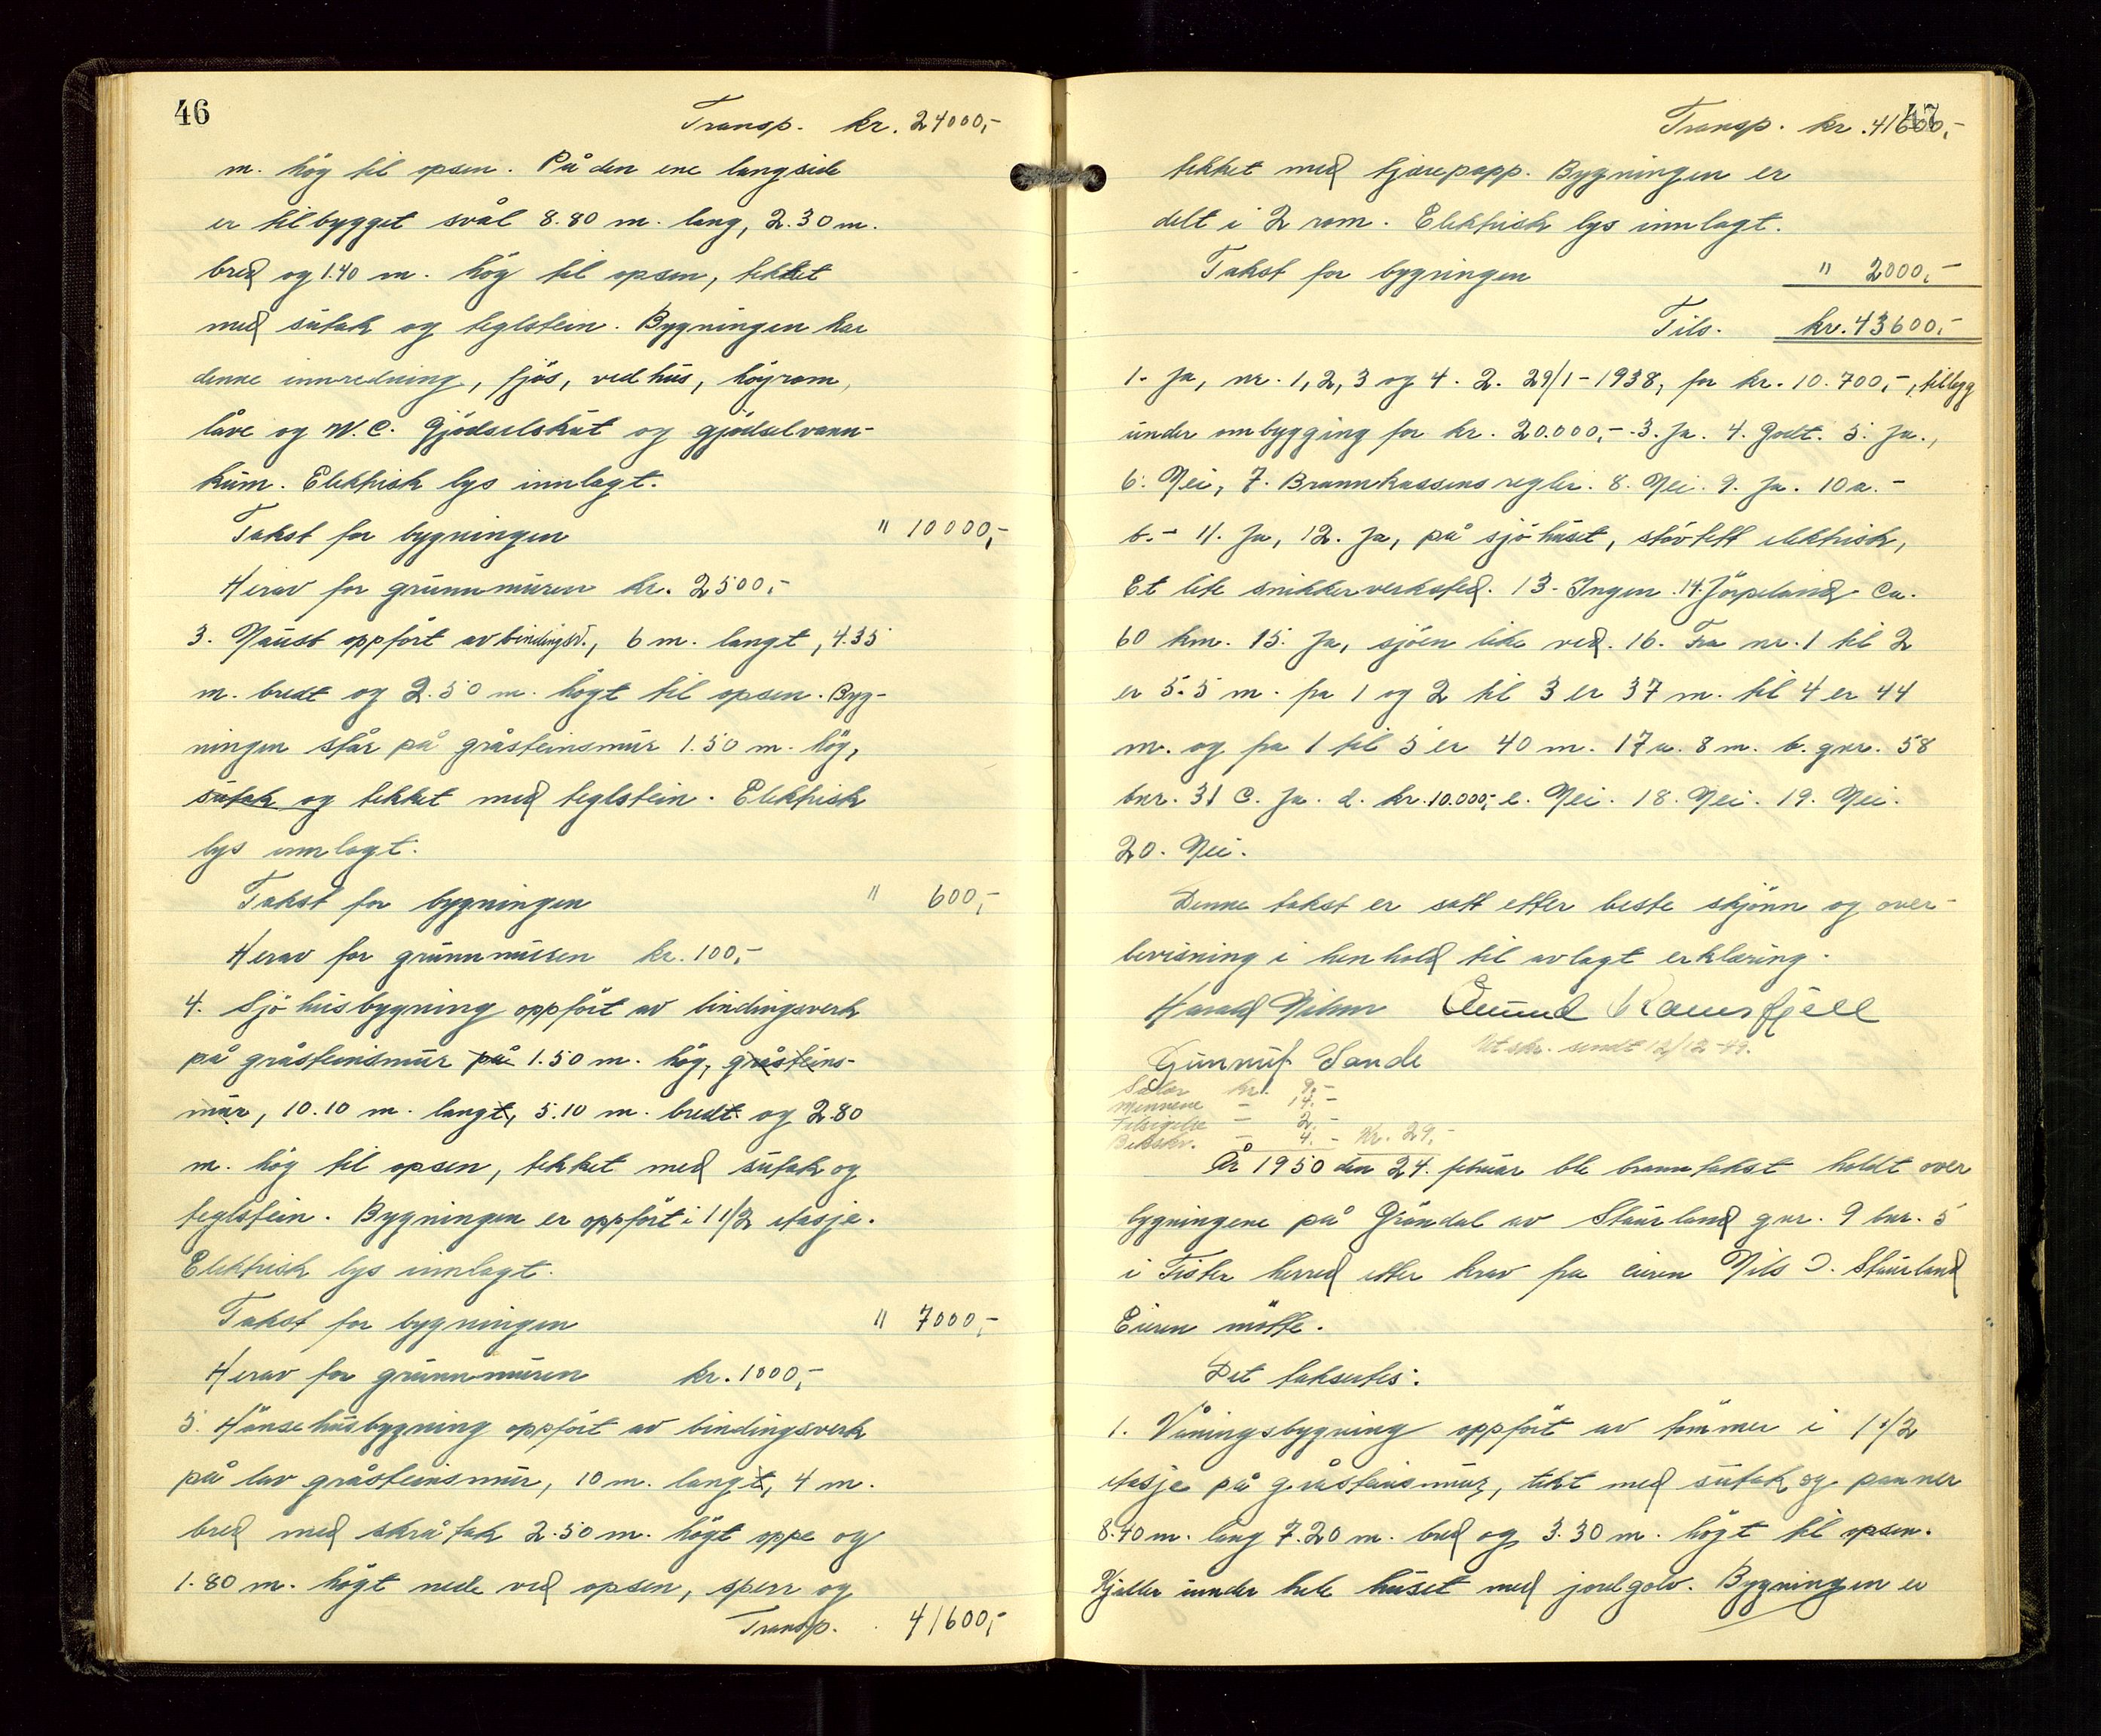 46
Transp. kr. 24000,-
m. høg til opsen. På den ene langside
er tilbygget svål 8.80 m. lang, 2.30 m.
bred og 1.40 m. høg til opsen, tekket
med sutak og teglstein. Bygningen har
denne innredning, fjøs, vedhus, høyrom,
låve og W.C. Gjødselskut og gjødselvann-
kum. Elektrisk lys innlagt.
Takst for bygningen " 10000,-
Herav for grunnmuren kr. 2500,-
3. Naust oppført av bindingsv., 6 m. langt, 4.35
m. bredt og 2.50 m. høgt til opsen. Byg-
ningen står på gråsteinsmur 1.50 m. høg,
sutak og tekket med teglstein. Elektrisk
lys innlagt.
Takst for bygningen " 600,-
Herav for grunnmuren kr. 100,-
4. Sjøhusbygning oppført av bindingsverk
på gråsteinsmur på 1.50 m. høg, gråsteins-
mur, 10.10 m. langt, 5.10 m. bredt og 2.80
m. høg til opsen, tekket med sutak og
teglstein. Bygningen er oppført i 1 1/2 etasje.
Elektrisk lys innlagt.
Takst for bygningen " 7000,-
Herav for grunnmuren kr. 1000,-
5. Hønsehusbygning oppført av bindingsverk
på lav gråsteinsmur, 10 m. langt, 4 m.
bred med skråtak 2.50 m. høgt oppe og
1.80 m. høgt nede ved opsen, sperr og
Transp. 41600,-
47
Transp. kr. 41600,-
tekket med tjærepapp. Bygningen er
delt i 2 rom. Elektrisk lys innlagt.
Takst for bygningen " 2000,-
Tils. kr. 43600,-
1. Ja, nr. 1, 2, 3 og 4. 2. 29/1-1938, for kr. 10.700,-, tilbygg
under ombygging for kr. 20.000,-. 3. Ja. 4. Godt. 5. Ja.,
6. Nei, 7. Brannkassens regler. 8. Nei. 9. Ja. 10a. -
b. - 11. Ja, 12. Ja, på sjøhuset, støvtett elektrisk,
Et lite snikkerverksted. 13. Ingen. 14. Jørpeland ca.
60 km. 15. Ja, sjøen like ved. 16. Fra nr. 1 til 2
er 5.5 m. fra 1 og 2 til 3 er 37 m. til 4 er 44
m. og fra 1 til 5 er 40 m. 17a. 8 m. b. gnr. 58
bnr. 31 c. Ja. d. kr. 10.000,- e. Nei. 18. Nei. 19. Nei.
20. Nei.
Denne takst er satt etter beste skjønn og over-
bevisning i henhold til avlagt erklæring.
Harald Nilsen Amund Ramsfjell
Gunnulf Sande Utskr. sendt 12/12-49.
Salær kr. 9.-
Mennene - 14.-
Tilsigelse - 2.-
Bekskr. - 4.- Kr. 29,-
År 1950 den 24. februar ble branntakst holdt over
bygningene på Grøndal av Staurland gnr. 9 bnr. 5
i Fister herred etter krav fra eieren Nils J. Staurland
Eieren møtte.
Det taksertes:
1. Våningsbygning oppført av tømmer i 1 1/2
etasje på gråsteinsmur, tekt med sutak og panner
8.40 m. lang 7.20 m. bred og 3.30 m. høgt til opsen.
Kjeller under hele huset med jordgolv. Bygningen er